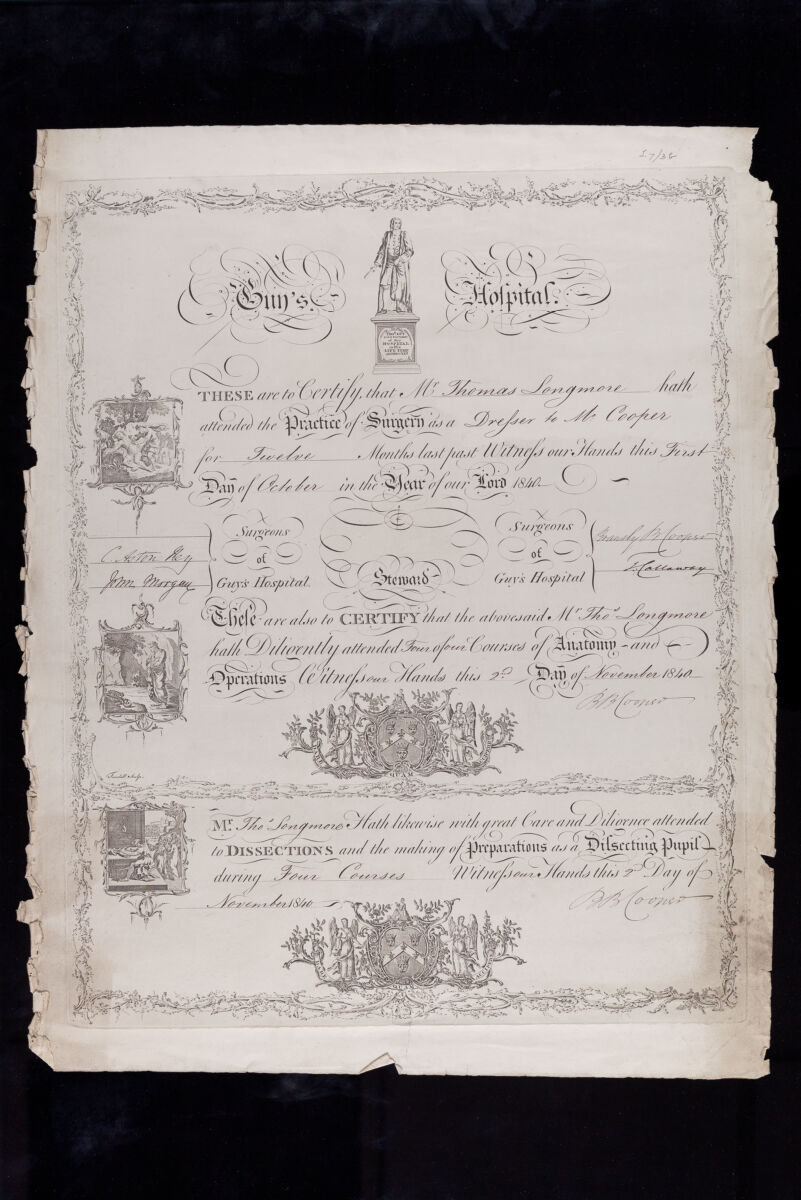 Guy's Hospital.
HOSPITAL
LIFE TIME
THESE are to Certify, that Mr. Thomas Longmore hath
attended the Practice of Surgery as a Dresser to Mr Cooper
for Twelve Months last past Witness our Hands this First
Day of October in the Year of our Lord 1840
Surgeons of Guy's Hospital
C. Aston Key
John Morgan
Steward
Surgeons of Guy's Hospital
Bransby B. Cooper
T. Callaway
These are also to CERTIFY that the abovesaid Mr. Thos. Longmore
hath Diligently attended Four of our Courses of Anatomy and
Operations Witness our Hands this 2d Day of November 1840
B B Cooper
Mr. Thos. Longmore Hath likewise with great Care and Diligence attended
to DISSECTIONS and the making of Preparations as a Dissecting Pupil
during Four Courses Witness our Hands this 2d Day of
November 1840
B B Cooper